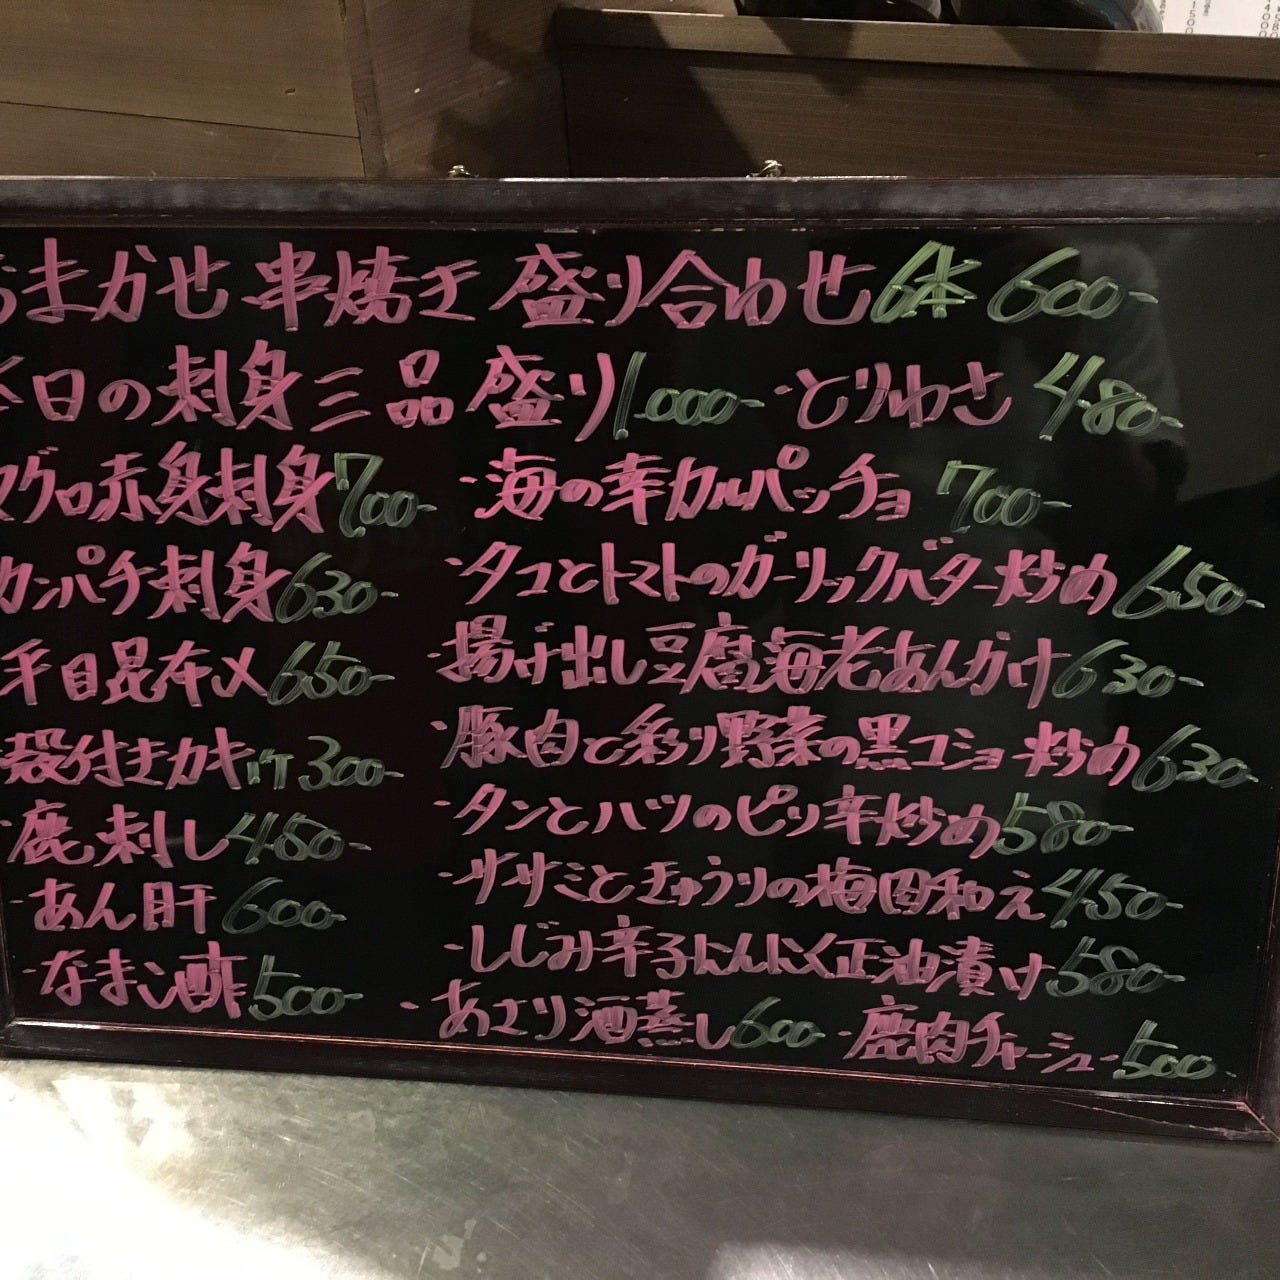 おまかせ串焼き盛り合わせ6本 600-
本日の刺身三品盛り1.000- ・とりわさ 480-
マグロ赤身刺身700- ・海の幸カルパッチョ 700-
カンパチ刺身630- ・タコとトマトのガーリックバター炒め 650-
平目昆布〆650- ・揚げ出し豆腐海老あんかけ630-
殻付きカキ1ケ300- ・豚肉と彩り野菜の黒コショー炒め630-
・鹿刺し480- ・タンとハツのピリ辛炒め580-
・あん肝600- ・ササミときゅうりの梅肉和え450-
・なまこ酢500- ・しじみ辛子にんにく正油漬け580-
・あさり酒蒸し600- ・鹿肉チャーシュー500-